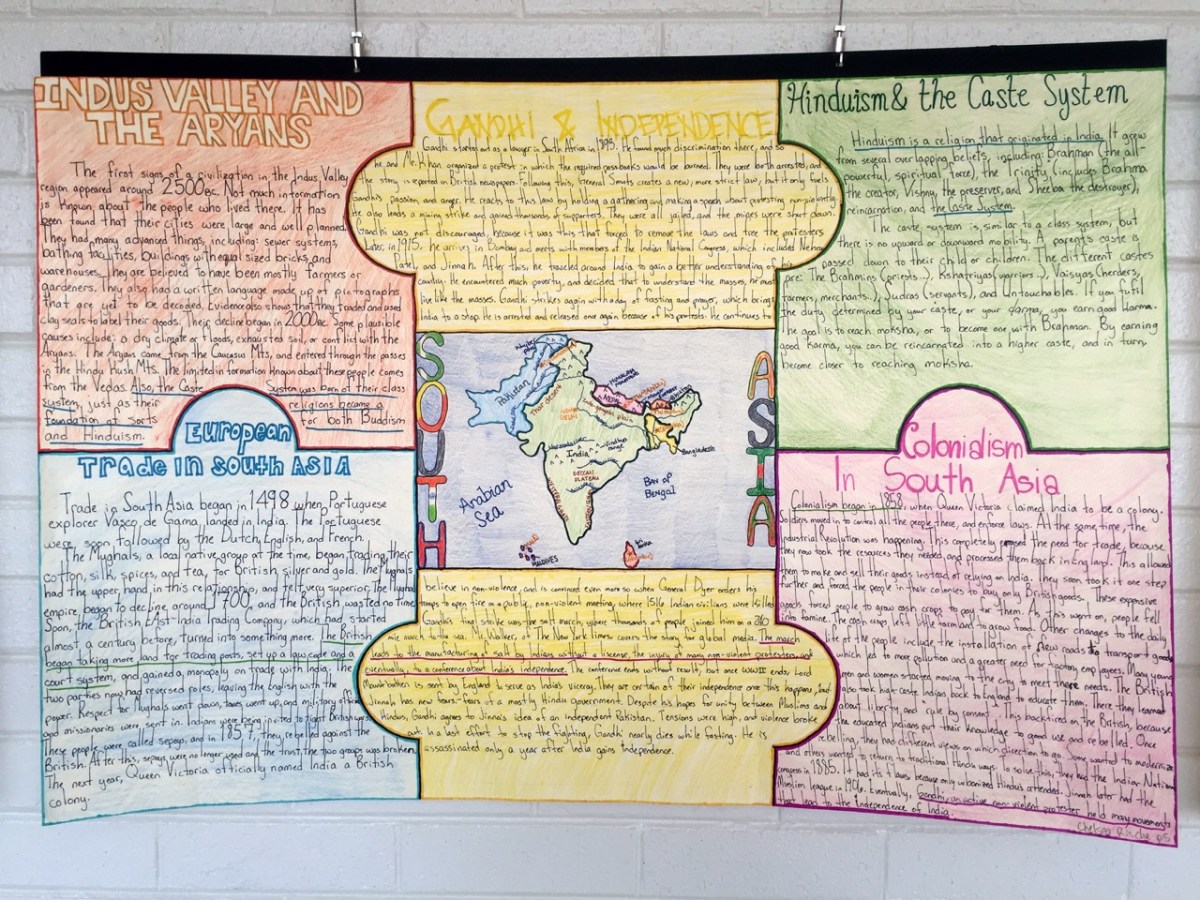 INDUS VALLEY AND
THE ARYANS
The first signs of a civilization in the Indus Valley
region appeared around 2500BC. Not much information
is known about the people who lived there. It has
been found that their cities were large and well planned.
They had many advanced things, including: sewer systems,
bathing facilities, buildings with equal sized bricks, and
warehouses. They are believed to have been mostly farmers or
gardeners. They also had a written language made up of pictographs
that are yet to be decoded. Evidence also shows that they traded and used
clay seals to label their goods. Their decline began in 2000BC. Some plausible
causes include: a dry climate or floods, exhausted soil, or conflict with the
Aryans. The Aryans came from the Caucasus Mts. and entered through the passes
in the Hindu Kush Mts. The limited information known about these people comes
from the Vedas. Also, the Caste System was born of their class
system, just as their religions became a
foundation of sorts for both Buddism
and Hinduism.
European
TRADE IN SOUTH ASIA
Trade in South Asia began in 1498 when Portuguese
explorer Vasco de Gama landed in India. The Portuguese
were soon followed by the Dutch, English, and French.
The Mughals, a local native group at the time, began trading their
cotton, silk, spices, and tea, for British silver and gold. The Mughals
had the upper hand in this relationship, and felt very superior. The Mughal
empire began to decline around 1700, and the British wasted no time.
Soon, the British East-India Trading Company, which had started
almost a century before, turned into something more. The British
began taking more land for trading posts, set up a law code and a
court system, and gained a monopoly on trade with India. The
two parties now had reversed roles, leaving the English with the
power. Respect for Mughals went down, taxes went up, and military offices
and missionaries were sent in. Indians were being invited to fight British wars.
These people were called sepoys, and in 1857, they rebelled against the
British. After this, sepoys were no longer used and the trust the two groups was broken.
The next year, Queen Victoria officially named India a British
colony.
GANDHI & INDEPENDENCE
Gandhi started out as a lawyer in South Africa in 1893. He found much discrimination there, and so
he and Mr. Khan organized a protest in which the required passbooks would be burned. They were both arrested, and
the story is reported in British newspapers. Following this, General Smuts creates a new, more strict law, but it only fuels
Gandhi's passion and anger. He reacts to this law by holding a gathering and making a speech about protesting non-violently.
He also leads a mining strike and gained thousands of supporters. They were all jailed, and the mines were shut down.
Gandhi was not discouraged, because it was this that forced to remove the laws and free the protesters.
Later, in 1915, he arrives in Bombay and meets with members of the Indian National Congress, which included Nehru,
Patel, and Jinnah. After this, he traveled around India to gain a better understanding of his
country. He encountered much poverty, and decided that to understand the masses, he must
live like the masses. Gandhi strikes again with a day of fasting and prayer, which brings
India to a stop. He is arrested and released once again because of his protests. He continues to
SOUTH
ASIA
Pakistan
Thar desert
India
DECCAN
PLATEAU
Bangladesh
Arabian
Sea
Bay of
Bengal
MALDIVES
believe in non-violence, and is convinced even more so when General Dyer orders his
troops to open fire on a public, non-violent meeting, where 1516 Indian civilians were killed.
Gandhi's final strike was the salt march, where thousands of people joined him on a 260
mile march to the sea. Mr. Walker, of The New York Times, covers the story for global media. The march
leads to the manufacturing of salt by Indians without a liscense, the injury of many non-violent protesters, and
eventually, to a conference about India's independence. The conference ends without result, but once WWII ends, Lord
Mountbatten is sent by England to serve as India's viceroy. They are certain of their independence once this happens, but
Jinnah has new fears- fears of a mostly Hindu government. Despite his hopes for unity between Muslims and
Hindus, Gandhi agrees to Jinna's idea of an independent Pakistan. Tensions were high, and violence broke
out. In a last effort to stop the fighting, Gandhi nearly dies while fasting. He is
assassinated only a year after India gains independence.
Hinduism & the Caste System
Hinduism is a religion that originated in India. It grew
from several overlapping beliefs, including: Brahman (the all-
powerful, spiritual force), the Trinity (includes Brahma
the creator, Vishnu, the preserver, and Sheeba the destroyer),
reincarnation, and the Caste System.
The caste system is similar to a class system, but
there is no upward or downward mobility. A parent's caste is
passed down to their child or children. The different castes
are: The Brahmins (priests..), Kshatriyas (warriors..), Vaisyas (herders,
farmers, merchants..), Sudras (servants), and Untouchables. If you fulfil
the duty determined by your caste, or your dharma, you earn good Karma.
The goal is to reach moksha, or to become one with Brahman. By earning
good Karma, you can be reincarnated into a higher caste, and in turn,
become closer to reaching moksha.
Colonialism
In South Asia
Colonialism began in 1858, when Queen Victoria claimed India to be a colony.
Soldiers moved in to control all the people there, and enforce laws. At the same time, the
Industrial Revolution was happening. This completely the need for trade, because
they now took the resources they needed, and processed them back in England. This allowed
them to make and sell their goods instead of relying on India. They soon took it one step
further and forced the people in their colonies to buy only British goods. These expensive
goods forced people to grow cash crops to pay for them. As this went on, people fell
into famine. The cash crops left little farmland to grow food. Other changes to the daily
life of the people include the installation of new roads to transport goods
which led to more pollution and a greater need for factory employees. Many young
men and women started moving to the city to meet there needs. The British
also took high caste Indians back to England to educate them. There they learned
about "liberty, and rule by consent". This backfired on the British, because
the educated Indians put their knowledge to good use and rebelled. Once
rebelling, they had different views on which direction to go. Some wanted to modernize
and others wanted to return to traditional Hindu ways. To solve this, they had the Indian National
congress in 1885. It had its flaws because only urbanized Hindus attended. Jinnah later had the
Muslim league in 1906. Eventually, Gandhi, an active non-violent protester, held many movements
that lead to the independence of India.